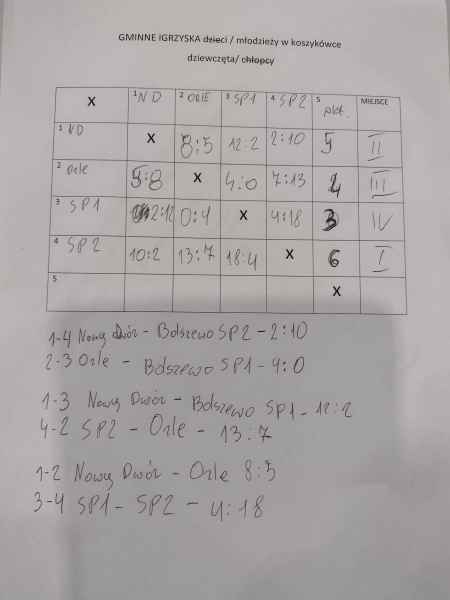 GMINNE IGRZYSKA dzieci / młodzieży w koszykówce
dziewczęta/ chłopcy
X 1 ND 2 Orle 3 SP1 4 SP2 5 pkt. MIEJSCE
1 ND X 8:5 12:2 2:10 5 II
2 Orle 5:8 X 4:0 7:13 4 III
3 SP1 2:12 0:4 X 4:18 3 IV
4 SP2 10:2 13:7 18:4 X 6 I
5 X
1-4 Nowy Dwór - Bolszewo SP2 - 2:10
2-3 Orle - Bolszewo SP1 - 4:0
1-3 Nowy Dwór - Bolszewo SP1 - 12:2
4-2 SP2 - Orle - 13:7
1-2 Nowy Dwór - Orle 8:5
3-4 SP1 - SP2 - 4:18